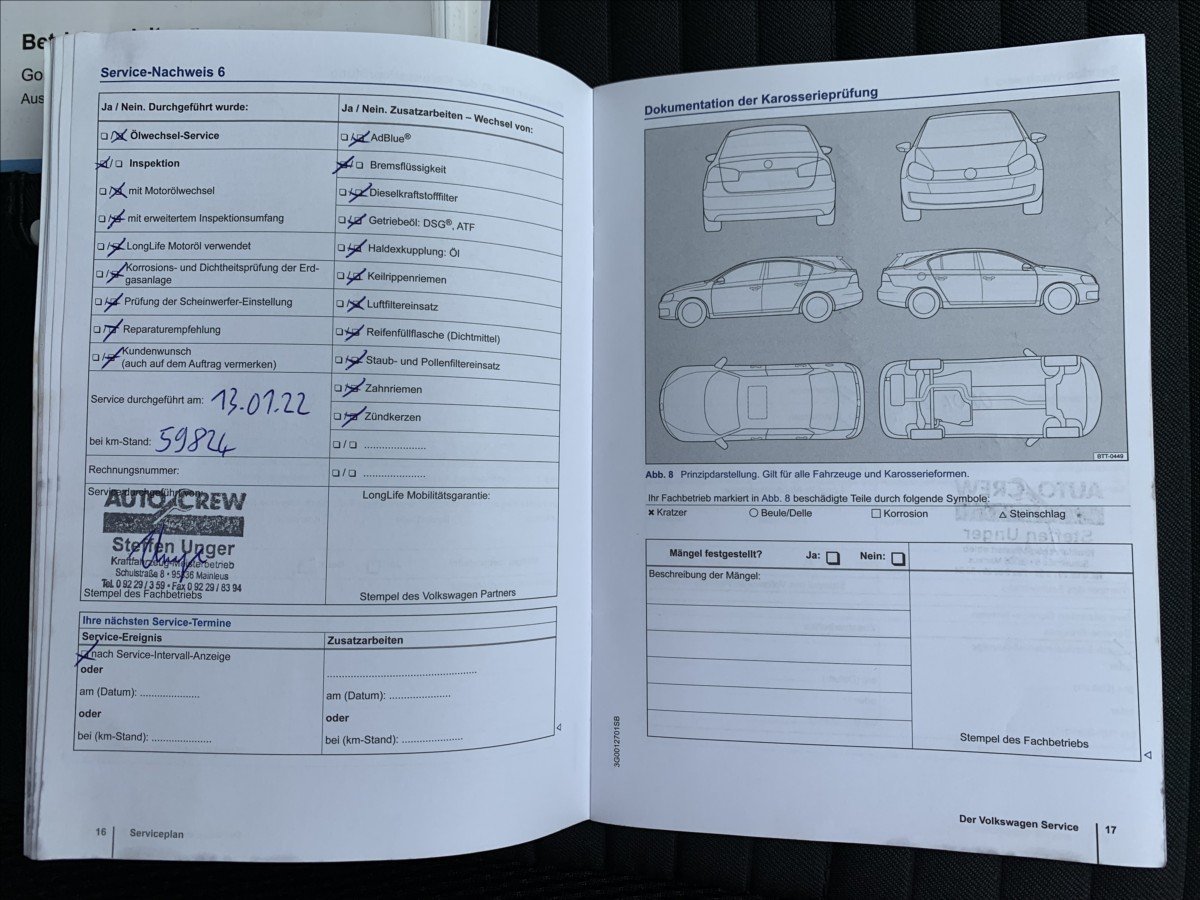 Go
Aus
Service-Nachweis 6
Ja / Nein. Durchgeführt wurde:
❏ / ❏ Ölwechsel-Service
❏ / ❏ Inspektion
❏ / ❏ mit Motorölwechsel
❏ / ❏ mit erweitertem Inspektionsumfang
❏ / ❏ LongLife Motoröl verwendet
❏ / ❏ Korrosions- und Dichtheitsprüfung der Erd-
gasanlage
❏ / ❏ Prüfung der Scheinwerfer-Einstellung
❏ / ❏ Reparaturempfehlung
❏ / ❏ Kundenwunsch
(auch auf dem Auftrag vermerken)
Service durchgeführt am: 13.01.22
bei km-Stand: 59824
Rechnungsnummer:
Service durchgeführt von:
AUTO CREW
Steffen Unger
Kraftfahrzeug-Meisterbetrieb
Schulstraße 8 • 95336 Mainleus
Tel. 0 92 29 / 3 59 • Fax 0 92 29 / 83 94
Stempel des Fachbetriebs
Ja / Nein. Zusatzarbeiten – Wechsel von:
❏ / ❏ AdBlue®
❏ / ❏ Bremsflüssigkeit
❏ / ❏ Dieselkraftstofffilter
❏ / ❏ Getriebeöl: DSG®, ATF
❏ / ❏ Haldexkupplung: Öl
❏ / ❏ Keilrippenriemen
❏ / ❏ Luftfiltereinsatz
❏ / ❏ Reifenfüllflasche (Dichtmittel)
❏ / ❏ Staub- und Pollenfiltereinsatz
❏ / ❏ Zahnriemen
❏ / ❏ Zündkerzen
❏ / ❏ ......................
❏ / ❏ ......................
LongLife Mobilitätsgarantie:
Stempel des Volkswagen Partners
Ihre nächsten Service-Termine
Service-Ereignis
❏ nach Service-Intervall-Anzeige
oder
am (Datum): .....................
oder
bei (km-Stand): .....................
Zusatzarbeiten
.....................................................
am (Datum): .....................
oder
bei (km-Stand): .....................
16 Serviceplan
Dokumentation der Karosserieprüfung
BTT-0449
Abb. 8 Prinzipdarstellung. Gilt für alle Fahrzeuge und Karosserieformen.
Ihr Fachbetrieb markiert in Abb. 8 beschädigte Teile durch folgende Symbole:
✖ Kratzer ○ Beule/Delle □ Korrosion △ Steinschlag
Mängel festgestellt? Ja: ❏ Nein: ❏
Beschreibung der Mängel:
Stempel des Fachbetriebs
3G0012701SB
Der Volkswagen Service 17